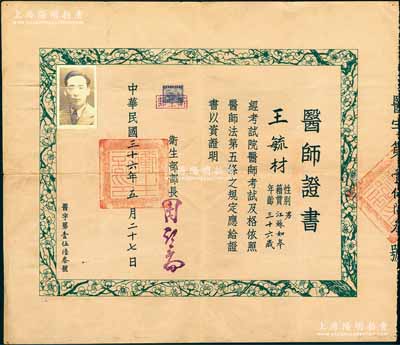 醫師證書
王毓材
性別 男
籍貫 江蘇如皋
年齡 三十六歲
經考試院醫師考試及格依照
醫師法第五條之規定應給證
書以資證明
衛生部部長
中華民國三十六年五月二十七日
醫字第壹伍陸叁號
上海陽明拍賣